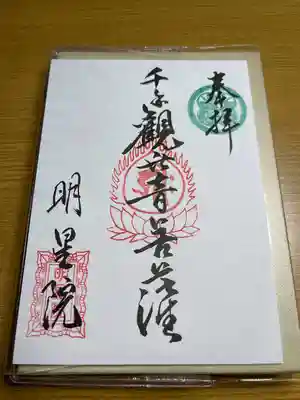 奉拝
千手観世音菩薩
明星院